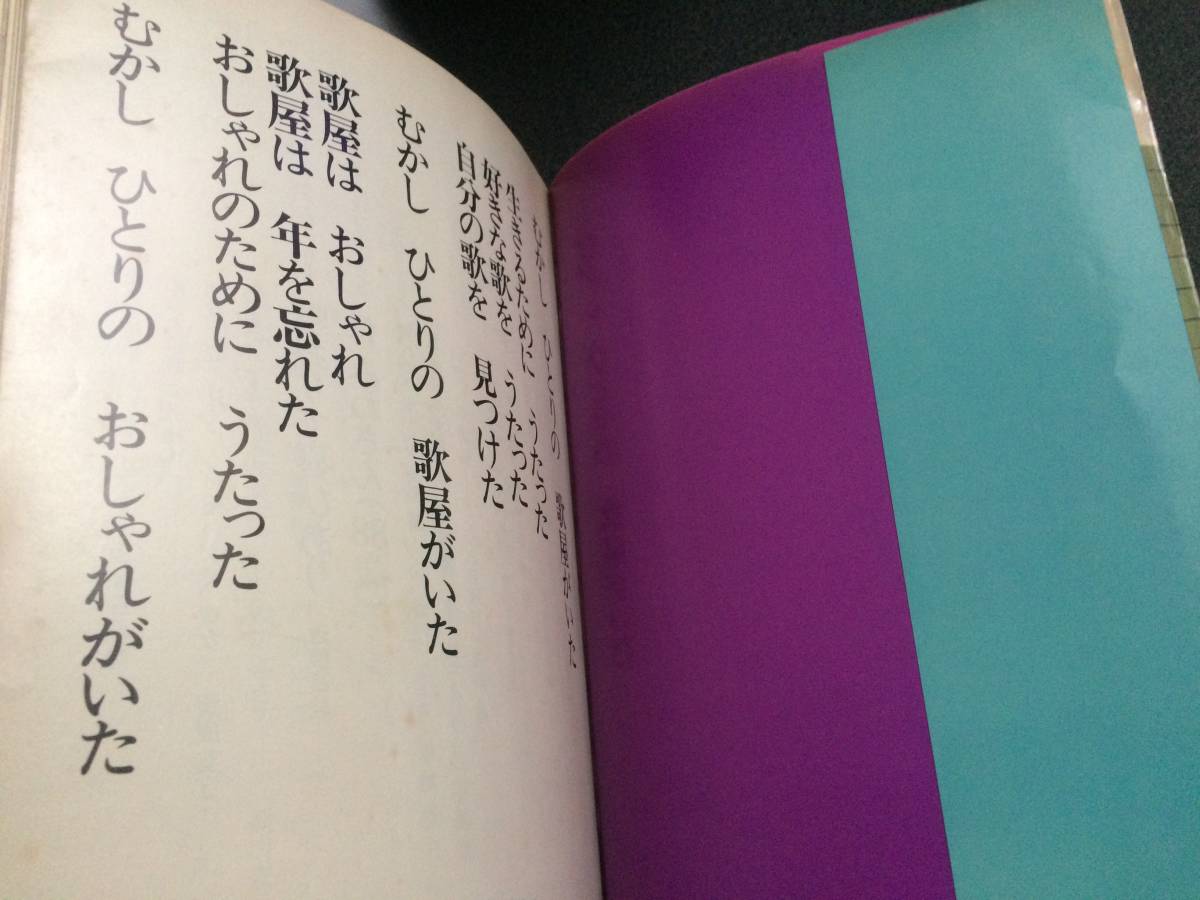 むかし ひとりの 歌屋がいた
生きるために うたうた
好きな歌を うたった
自分の歌を 見つけた
むかし ひとりの 歌屋がいた
歌屋は おしゃれ
歌屋は 年を忘れた
おしゃれのために うたった
むかし ひとりの おしゃれがいた